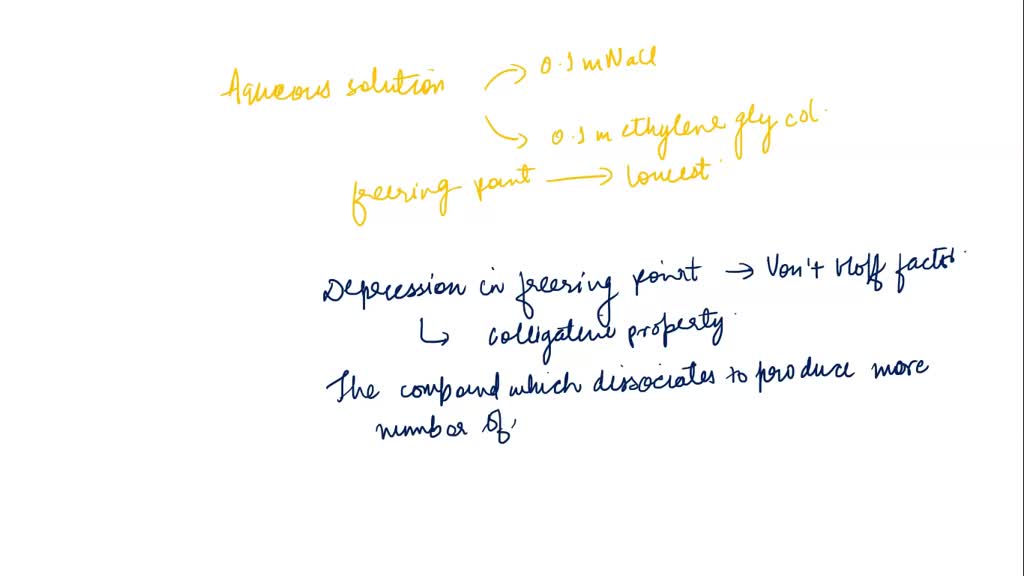 Aqueous solution
0.1 m NaCl
0.1 m ethylene glycol.
freezing point → lowest
Depression in freezing point → Von't Hoff factor.
colligative property.
The compound which dissociates to produce more
number of